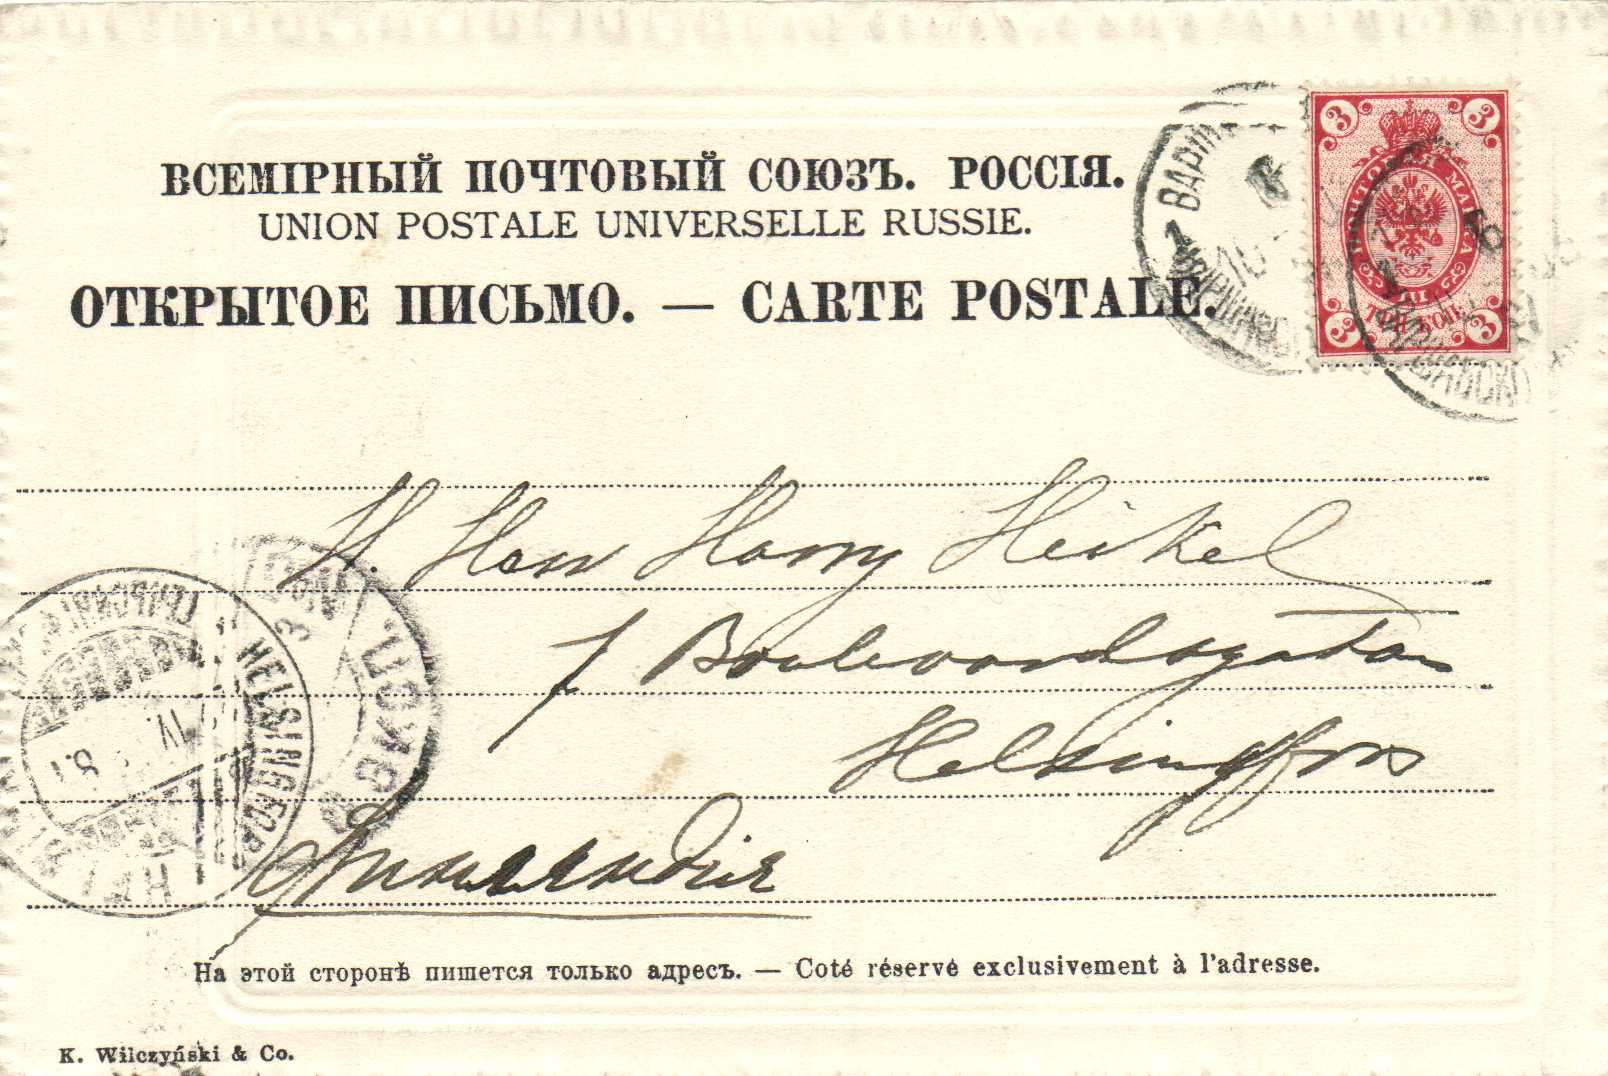 ВСЕМІРНЫЙ ПОЧТОВЫЙ СОЮЗЪ. РОССІЯ.
UNION POSTALE UNIVERSELLE RUSSIE.
ОТКРЫТОЕ ПИСЬМО. — CARTE POSTALE.
3 3
ПОЧТОВАЯ МАРКА
ТРИ КОП.
3 3
H. Herr Harry Heikel
7 Boulevardsgatan
Helsingfors
HELSINGFORS
Финляндія
На этой сторонѣ пишется только адресъ. — Coté réservé exclusivement à l'adresse.
K. Wilczyński & Co.